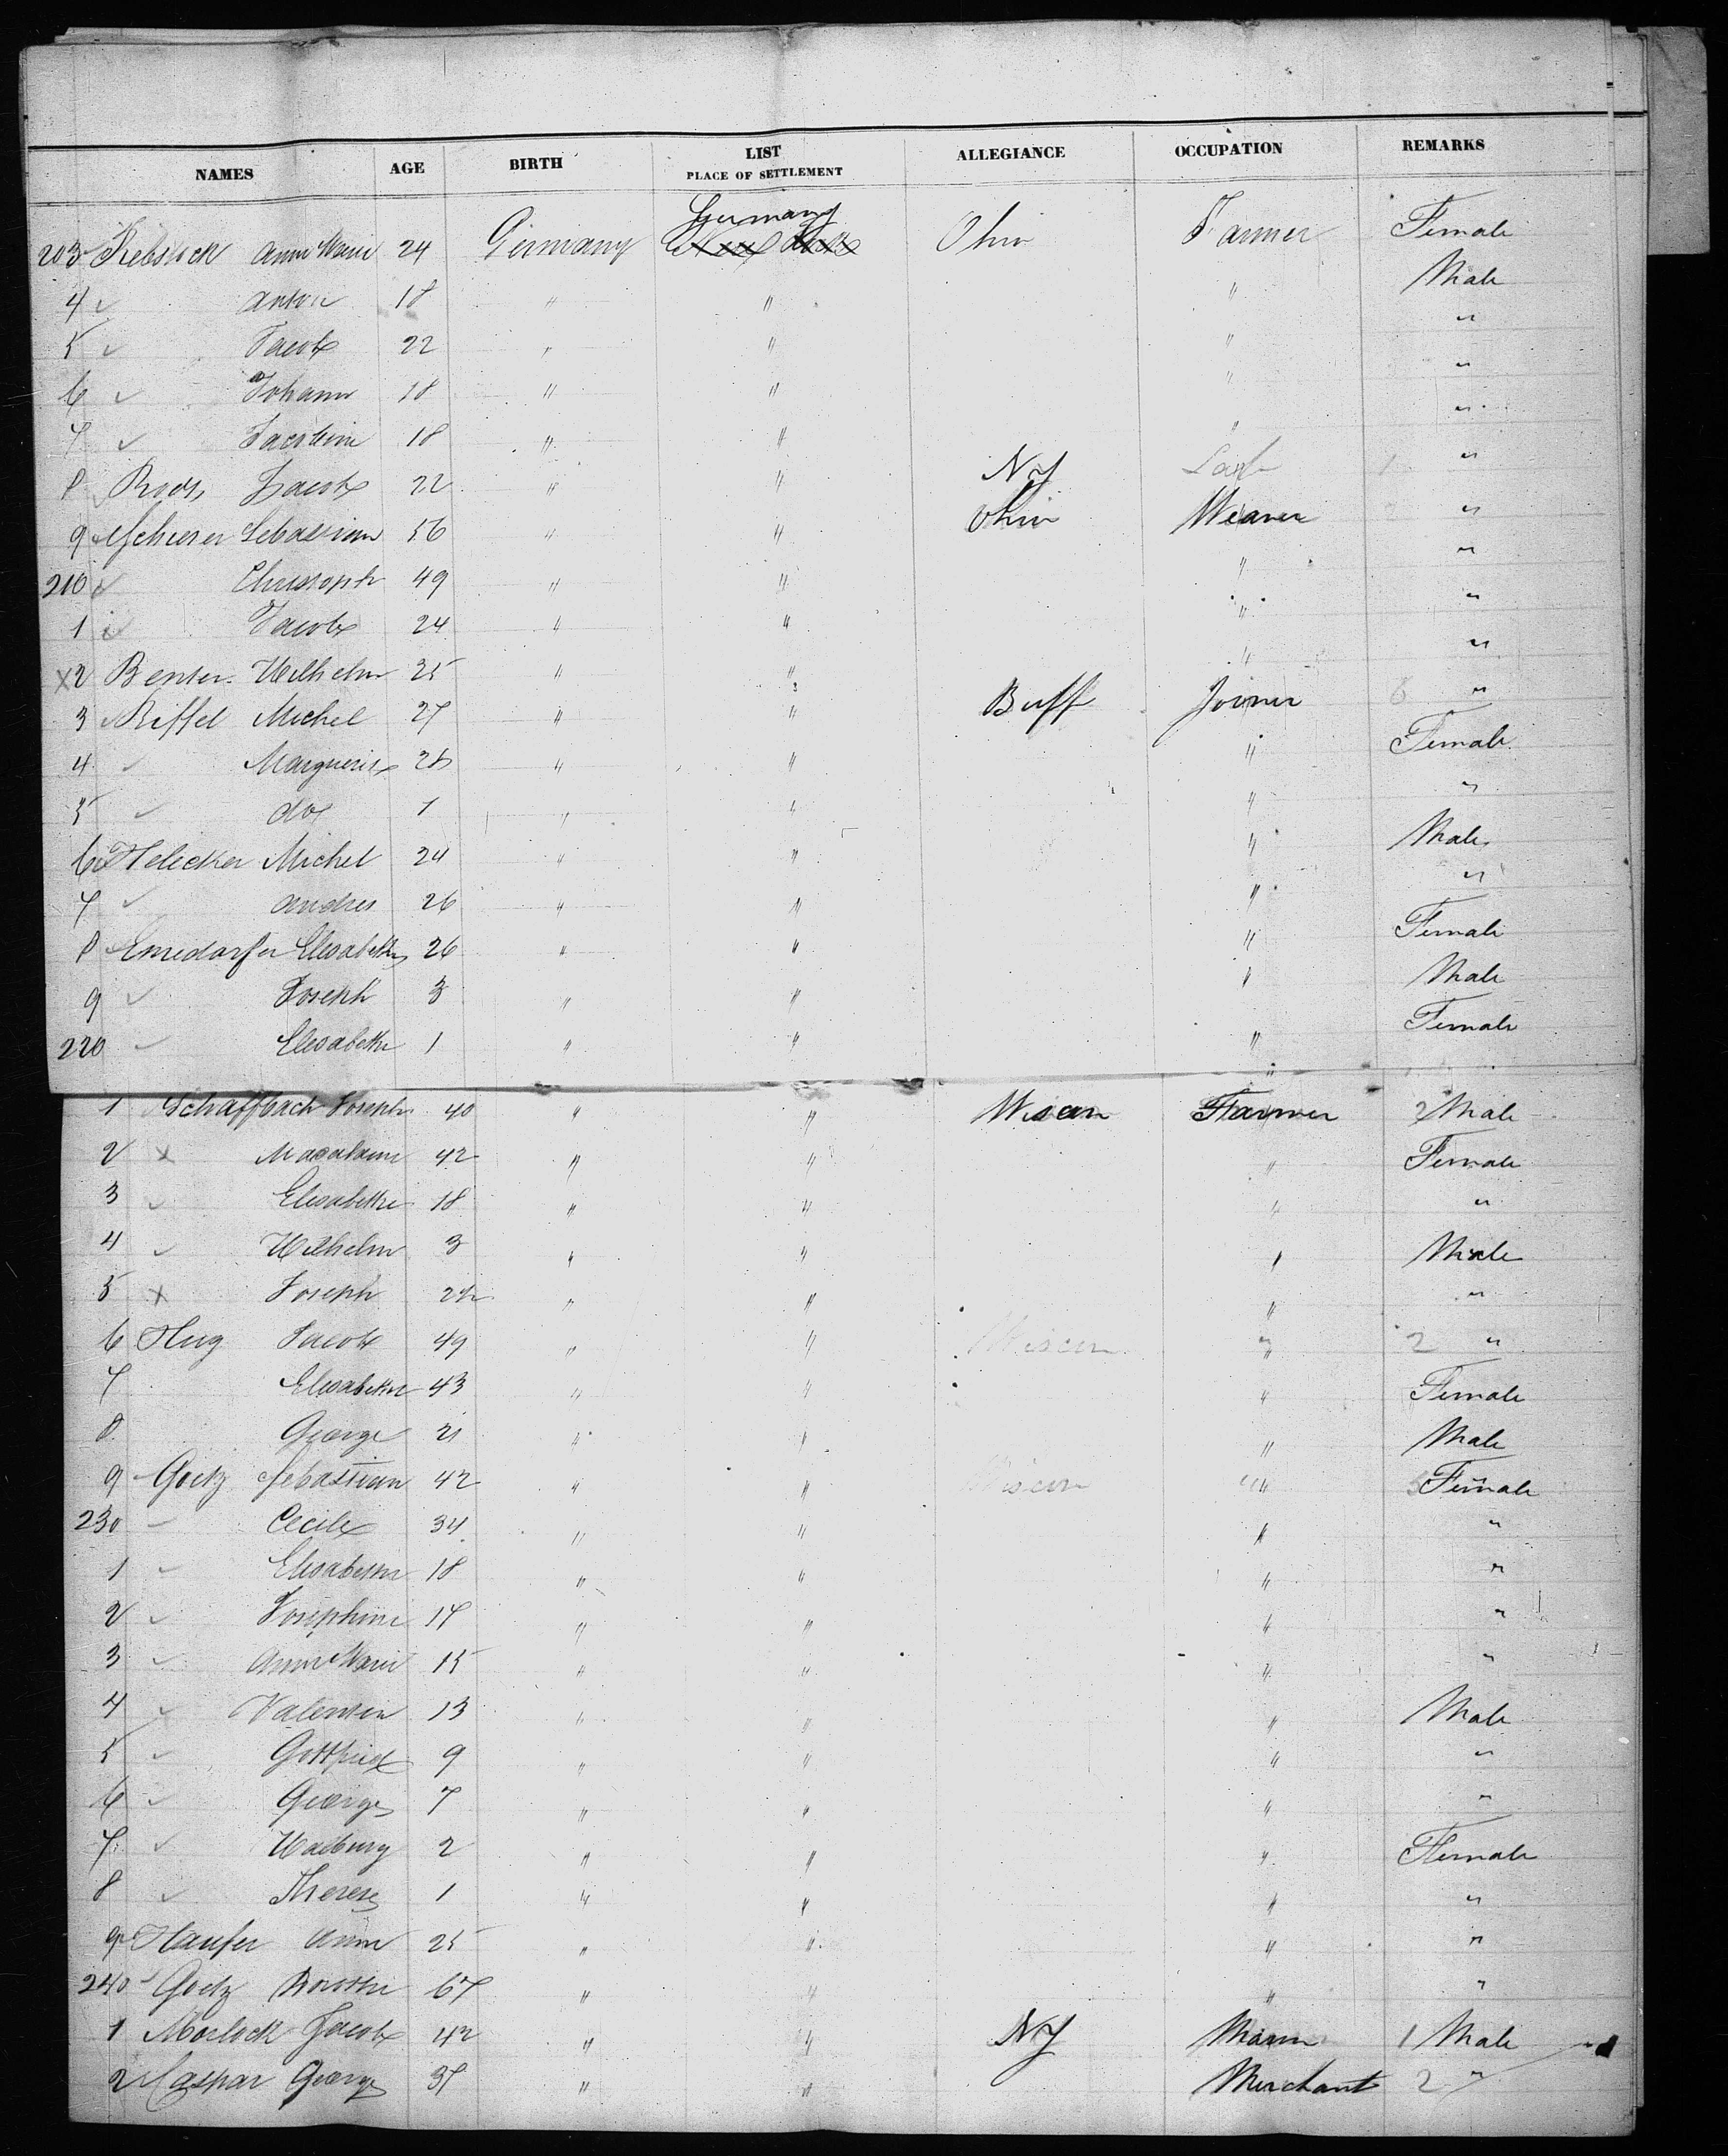 NAMES AGE BIRTH LIST PLACE OF SETTLEMENT ALLEGIANCE OCCUPATION REMARKS
Germany
203 Rebstock Anna Marie 24 Germany Ohio Farmer Female
4 ✓ Anton 18 " " " Male
5 ✓ Jacob 22 " " " "
6 ✓ Johann 18 " " " "
7 ✓ 18 " " " "
8 Jacob 22 " " NY "
9 Scherer Sebastian 56 " " Ohio Weaver "
210 ✓ Christoph 49 " " " "
1 ✓ Jacob 24 " " " "
x2 Benter Wilhelm 25 " " " "
3 Riffel Michel 27 " " Buff Joiner 6 "
4 ✓ " " " Female
5 ✓ do 1 " " " "
6 Michel 24 " " " Male
7 ✓ Andres 26 " " " "
8 Elisabeth 26 " " " Female
9 ✓ Joseph 3 " " " Male
220 ✓ Elisabethe 1 " " " Female
1 Schaffbach Joseph 40 " " Wiscon Farmer 2 Male
2 x 42 " " " Female
3 ✓ Elisabethe 18 " " " "
4 ✓ Wilhelm 3 " " " Male
5 x Joseph " " " "
6 Hug Jacob 49 " " Wiscon " 2 "
7 Elisabethe 43 " " " Female
8 George 21 " " " Male
9 Goetz Sebastian 42 " " Wiscon " Female
230 ✓ Cecile 34 " " " "
1 ✓ Elisabethe 18 " " " "
2 ✓ Josephine 17 " " " "
3 ✓ Anna Marie 15 " " " "
4 ✓ Valentin 13 " " " Male
5 ✓ Gottfried 9 " " " "
6 ✓ George 7 " " " "
7 ✓ Walburg 2 " " " Female
8 ✓ Therese 1 " " " "
9 Haufer Anna 25 " " " "
240 ✓ Goetz 67 " " " "
1 Morlock Jacob 42 " " NY 1 Male
2 Caspar George 37 " " Merchant 2 "